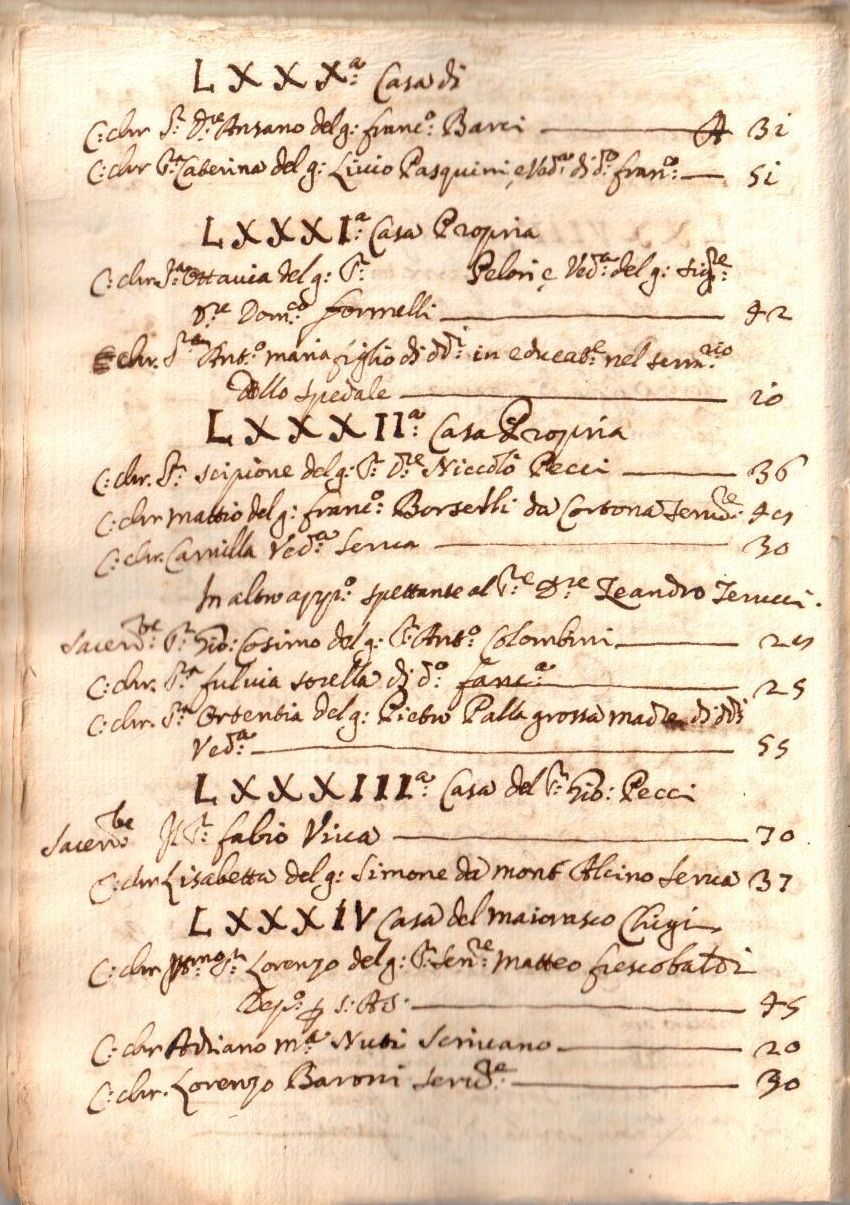 LXXXª: Casa di
C: chr Sr: Dre Ansano del g: franco: Barci A 31
C: chr Sra Caterina del g: Livio Pasquini eVeda: di do: franco: 51
LXXXIª: Casa Propria
C: chr Sra Ottavia del g: Sr: Pelori e Veda: del g: Sigre:
Dre Domco: formelli 42
C: chr. Sr: Anto: maria figlio di ddi: in educate: nel semrio:
dello spedale 10
LXXXIIª: Casa Propria
C: chr. Sr: scipione del g: Sr: Dre: Niccolò Pecci 36
C: chr mattio del g: franco: Borselli da Cortona Servre:
C: chr. Camilla Veda: Serva 30
In altro appo: spettante al Sre: Dre Leandro
Sacerdte: Sr: Gio: Cosimo del g: Sr: Anto: Colombini
C: chr. Sra fulvia sorella di do: 25
C: chr. Sra Ortentia del g: Pietro Palla grossa madre di ddi
Veda: 55
LXXXIIIª: Casa del Sr: Gio: Pecci
Sacerdte Il Sr: fabio Viva 70
C: chr Lisabetta del g: Simone da mont Alcino Serva 37
LXXXIV Casa del maiorasco Chigi
C: chr Illmo: Sr: Lorenzo del g: Sr: Senre: Matteo frescobaldi
Depo: p s: As: 45
C: chr Adriano ma: Nuti Scrivano 20
C: chr. Lorenzo Baroni serve: 30